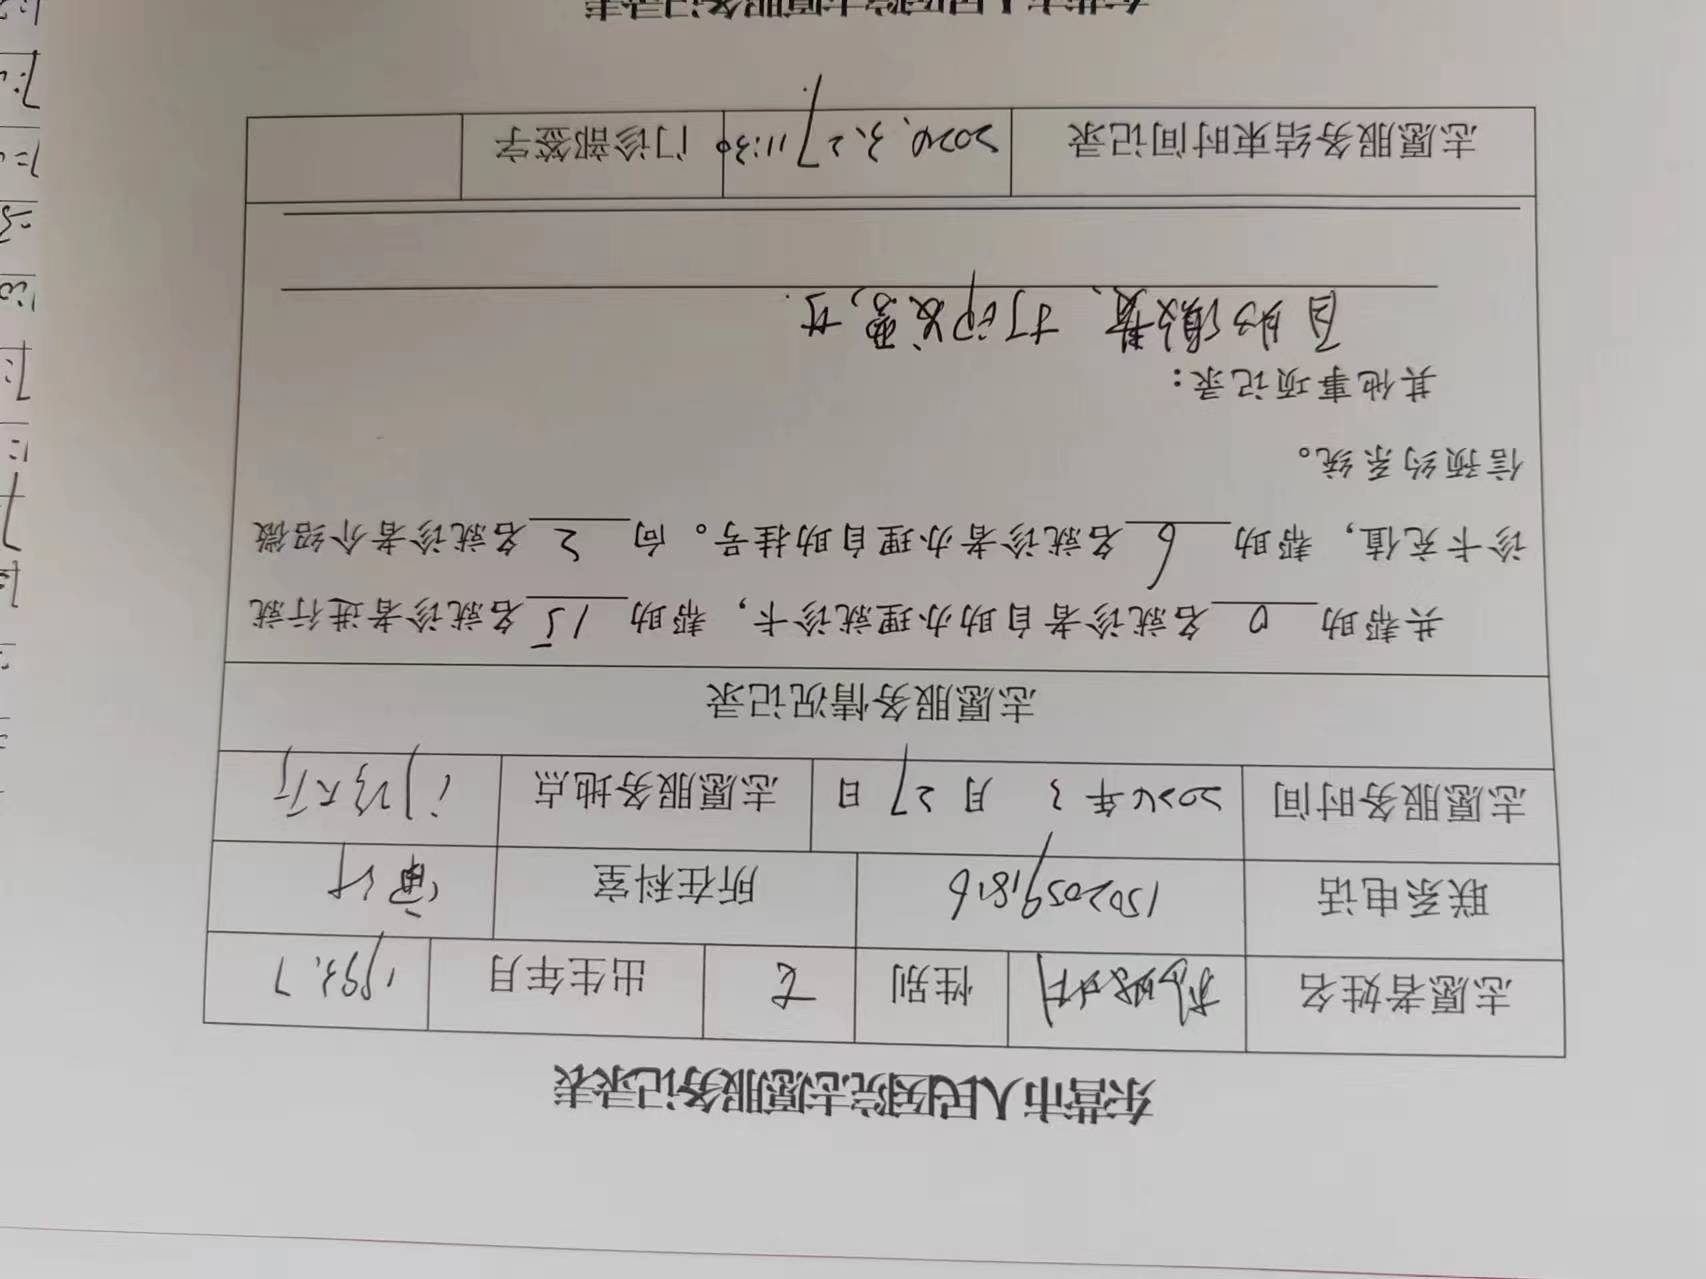 东营市人民医院志愿服务记录表
志愿者姓名 性别 女 出生年月 1993.7
联系电话 15020591816 所在科室 审计
志愿服务时间 2024年 3 月 27 日 志愿服务地点 门诊大厅
志愿服务情况记录
共帮助 0 名就诊者自助办理就诊卡，帮助 15 名就诊者进行就
诊卡充值，帮助 6 名就诊者办理自助挂号。向 2 名就诊者介绍微
信预约系统。
其他事项记录：
自助缴费、打印发票，等.
志愿服务结束时间记录 2024.3.27 11:30 门诊部签字
东营市人民医院志愿服务记录表